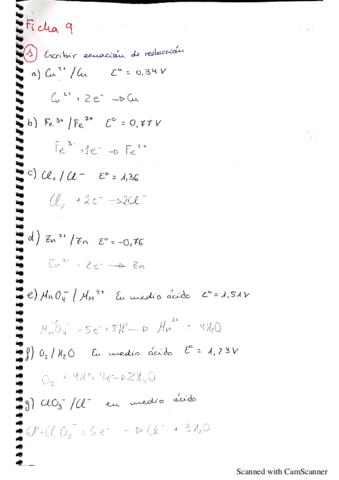 Ficha 9
① Escribir ecuación de reducción
a) Cu²⁺/Cu E° = 0,34V
Cu²⁺ + 2e⁻ → Cu
b) Fe³⁺/Fe²⁺ E° = 0,77V
Fe³⁺ + 1e⁻ → Fe²⁺
c) Cl₂/Cl⁻ E° = 1,36
Cl₂ + 2e⁻ → 2Cl⁻
d) Zn²⁺/Zn E° = -0,76
Zn²⁺ + 2e⁻ → Zn
e) MnO₄⁻/Mn²⁺ En medio ácido E° = 1,51V
MnO₄⁻ + 5e⁻ + 8H⁺ → Mn²⁺ + 4H₂O
f) O₂/H₂O En medio ácido E° = 1,23V
O₂ + 4H⁺ + 4e⁻ → 2H₂O
g) ClO₃⁻/Cl⁻ en medio ácido
6H⁺ + ClO₃⁻ + 6e⁻ → Cl⁻ + 3H₂O
Scanned with CamScanner